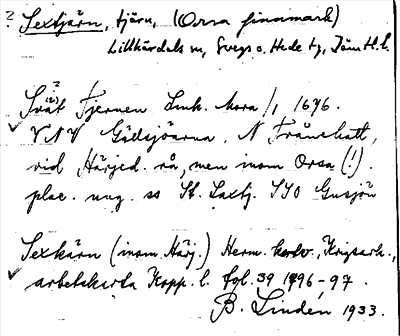 ? Sextjärn, tjärn, (Orsa finnmark)
Lillhärdals sn, Svegs o. Hede tg, Jämtl. l.
Svåt Tjernen Link. Mora 1/1 1696.
VNV Gällsjöarna, N Fränshatt,
vid Härjed. rå, men inom Orsa (!).
plac. ung. ss St. Laxtj. SSO Gusjön
Sextärn (inom Härj.) Herm. kartv., Krigsark.,
arbetskarta Kopp. l. fgl. 39 1896-97.
B. Lindén 1933.